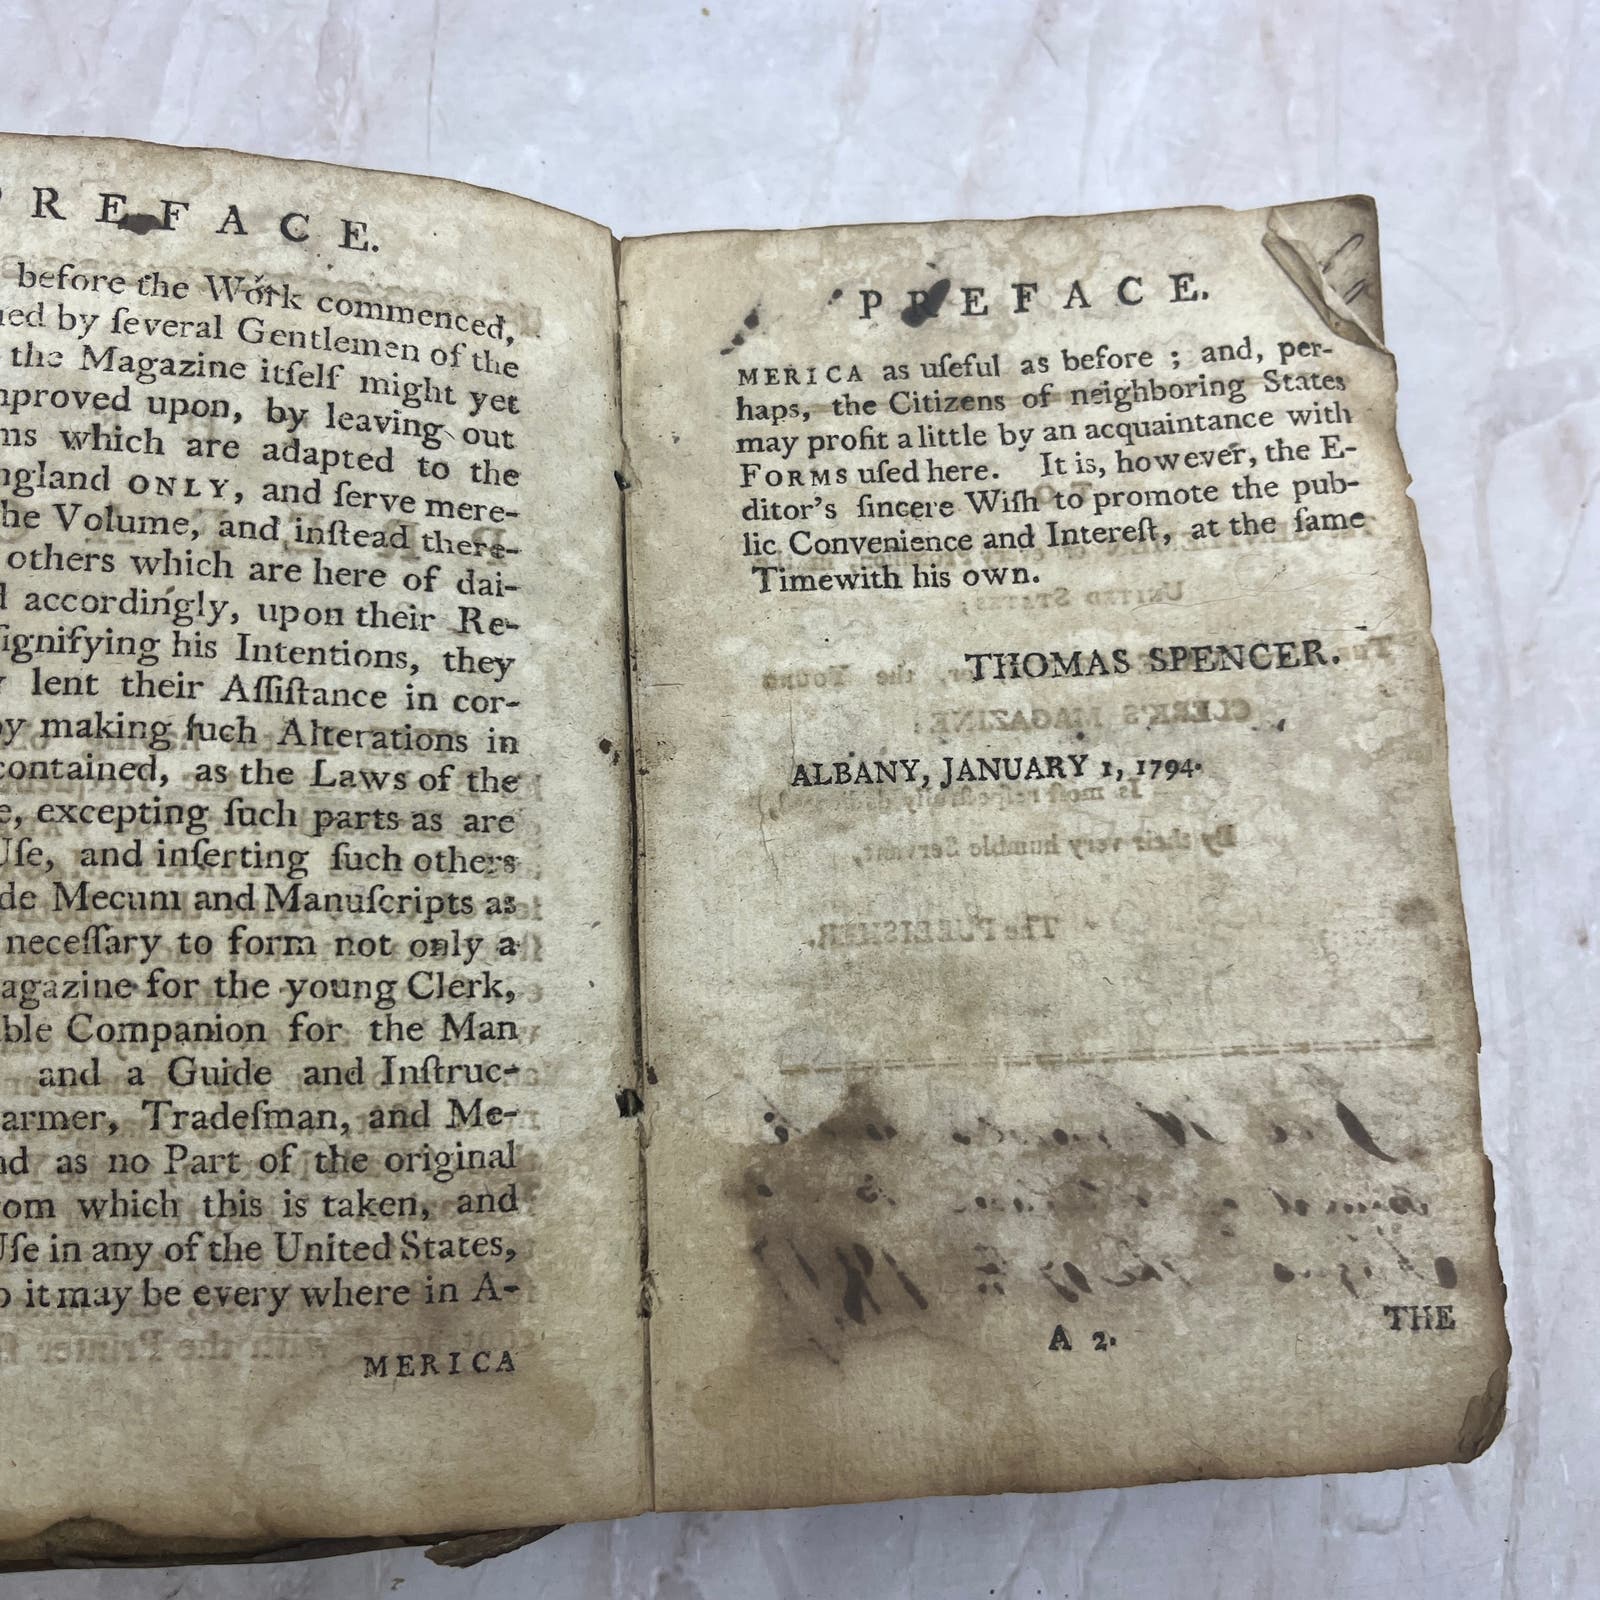 PREFACE.
before the Work commenced,
by ſeveral Gentlemen of the
the Magazine itſelf might yet
upon, by leaving out
which are adapted to the
ONLY, and ſerve mere-
Volume, and inſtead there-
others which are here of dai-
accordingly, upon their Re-
his Intentions, they
lent their Aſſiſtance in cor-
making ſuch Alterations in
contained, as the Laws of the
excepting ſuch parts as are
and inſerting ſuch others
Mecum and Manuſcripts as
neceſſary to form not only a
for the young Clerk,
Companion for the Man
and a Guide and Inſtruc-
Tradeſman, and Me-
as no Part of the original
which this is taken, and
in any of the United States,
it may be every where in A-
MERICA
PREFACE.
MERICA as uſeful as before ; and, per-
haps, the Citizens of neighboring States
may profit a little by an acquaintance with
FORMS uſed here. It is, however, the E-
ditor's ſincere Wiſh to promote the pub-
lic Convenience and Intereſt, at the ſame
Timewith his own.
THOMAS SPENCER.
ALBANY, JANUARY 1, 1794.
A 2.
THE